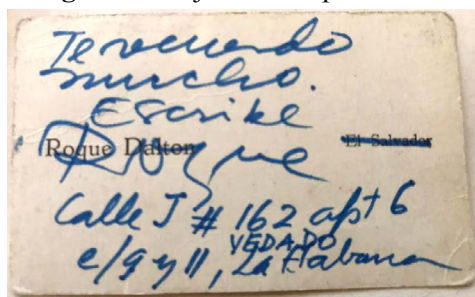 Te recuerdo
mucho.
Escribe
Roque Dalton
El Salvador
Roque
Calle J # 162 apt 6
VEDADO
e/9 y 11, La Habana